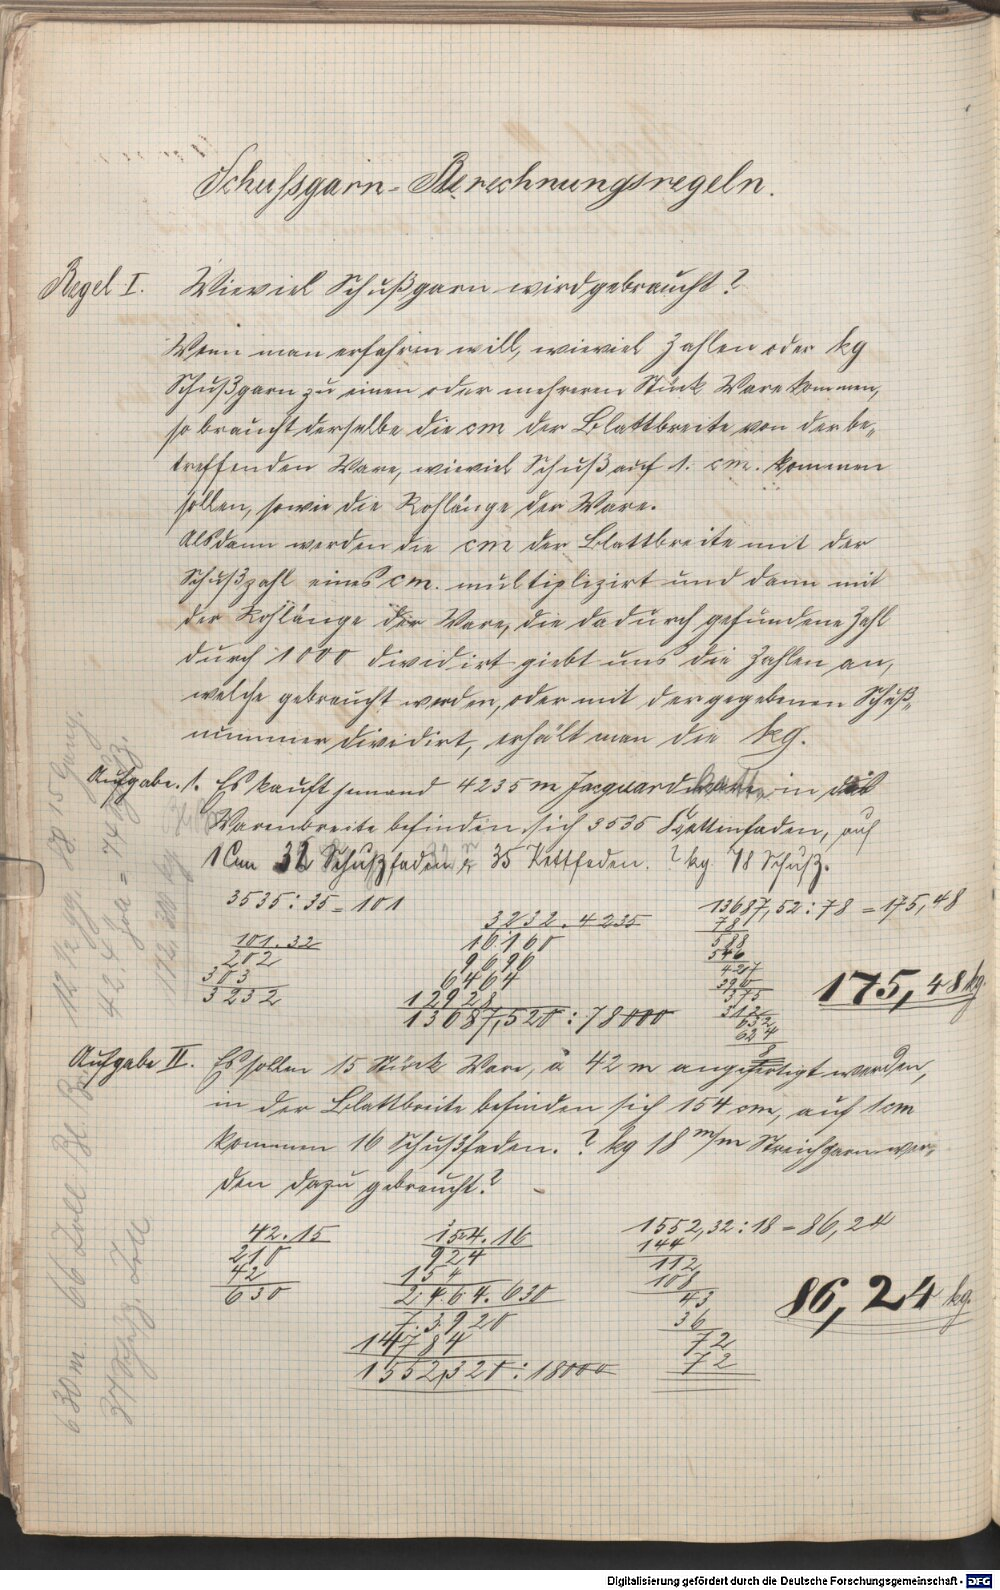 Schußgarn-Berechnungsregeln.
Regel I. Wieviel Schußgarn wird gebraucht?
Wenn man erfahren will, wieviel Zahlen oder kg
Schußgarn zu einen oder mehreren Stück Ware kommen,
so braucht derselbe die cm der Blattbreite von der be-
treffenden Ware, wieviel Schuß auf 1. cm. kommen
sollen, sowie die Rohlänge der Ware.
Alsdann werden die cm der Blattbreite mit der
Schußzahl eines cm. multiplizirt und dann mit
der Rohlänge der Ware, die dadurch gefundene Zahl
durch 1000 dividirt giebt uns die Zahlen an,
welche gebraucht werden, oder mit der gegebenen Schuß-
nummer dividirt, erhält man die kg.
Aufgabe. 1. Es kauft jemand 4235 m Jacquard in die
Warenbreite befinden sich 3535 Kettenfaden, auf
1 Cm 32 Schußfaden 35 Kettfeden. ? kg 78 Schuß.
3535 : 35 = 101
101 . 32
202
303
3232
3232 . 4235
16160
9696
6464
12928
13687,520 : 78000
13687,52 : 78 = 175,48
78
588
546
427
390
375
312
632
624
8
175,48 kg.
Aufgabe II. Es sollen 15 Stück Ware, à 42 m angefertigt werden,
in der Blattbreite befinden sich 154 cm, auf 1 cm
kommen 16 Schußfaden. ? kg 18 m/m Streichgarn wer-
den dazu gebraucht?
42 . 15
210
42
630
154 . 16
924
154
2464 . 630
73920
14784
1552,320 : 18000
1552,32 : 18 = 86,24
144
112
108
43
36
72
72
86,24 kg.
630 m. 66 Zoll Bl. Br.
Digitalisierung gefördert durch die Deutsche Forschungsgemeinschaft - DFG